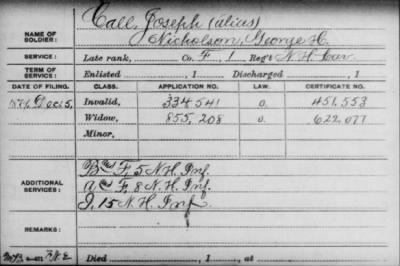 NAME OF SOLDIER: Call, Joseph (alias)
Nicholson, George H.
SERVICE: Late rank, Co. F, 1 Reg't N.H. Cav.
TERM OF SERVICE: Enlisted , 1 Discharged , 1
DATE OF FILING. CLASS. APPLICATION NO. LAW. CERTIFICATE NO.
Dec 5, Invalid, 334 541 G. 451,553
Widow, 855,208 G. 622,077
Minor,
ADDITIONAL SERVICES: F, 5 N.H. Inf.
F, 8 N.H. Inf.
15 N.H. Inf.
REMARKS:
Died , 1 , at